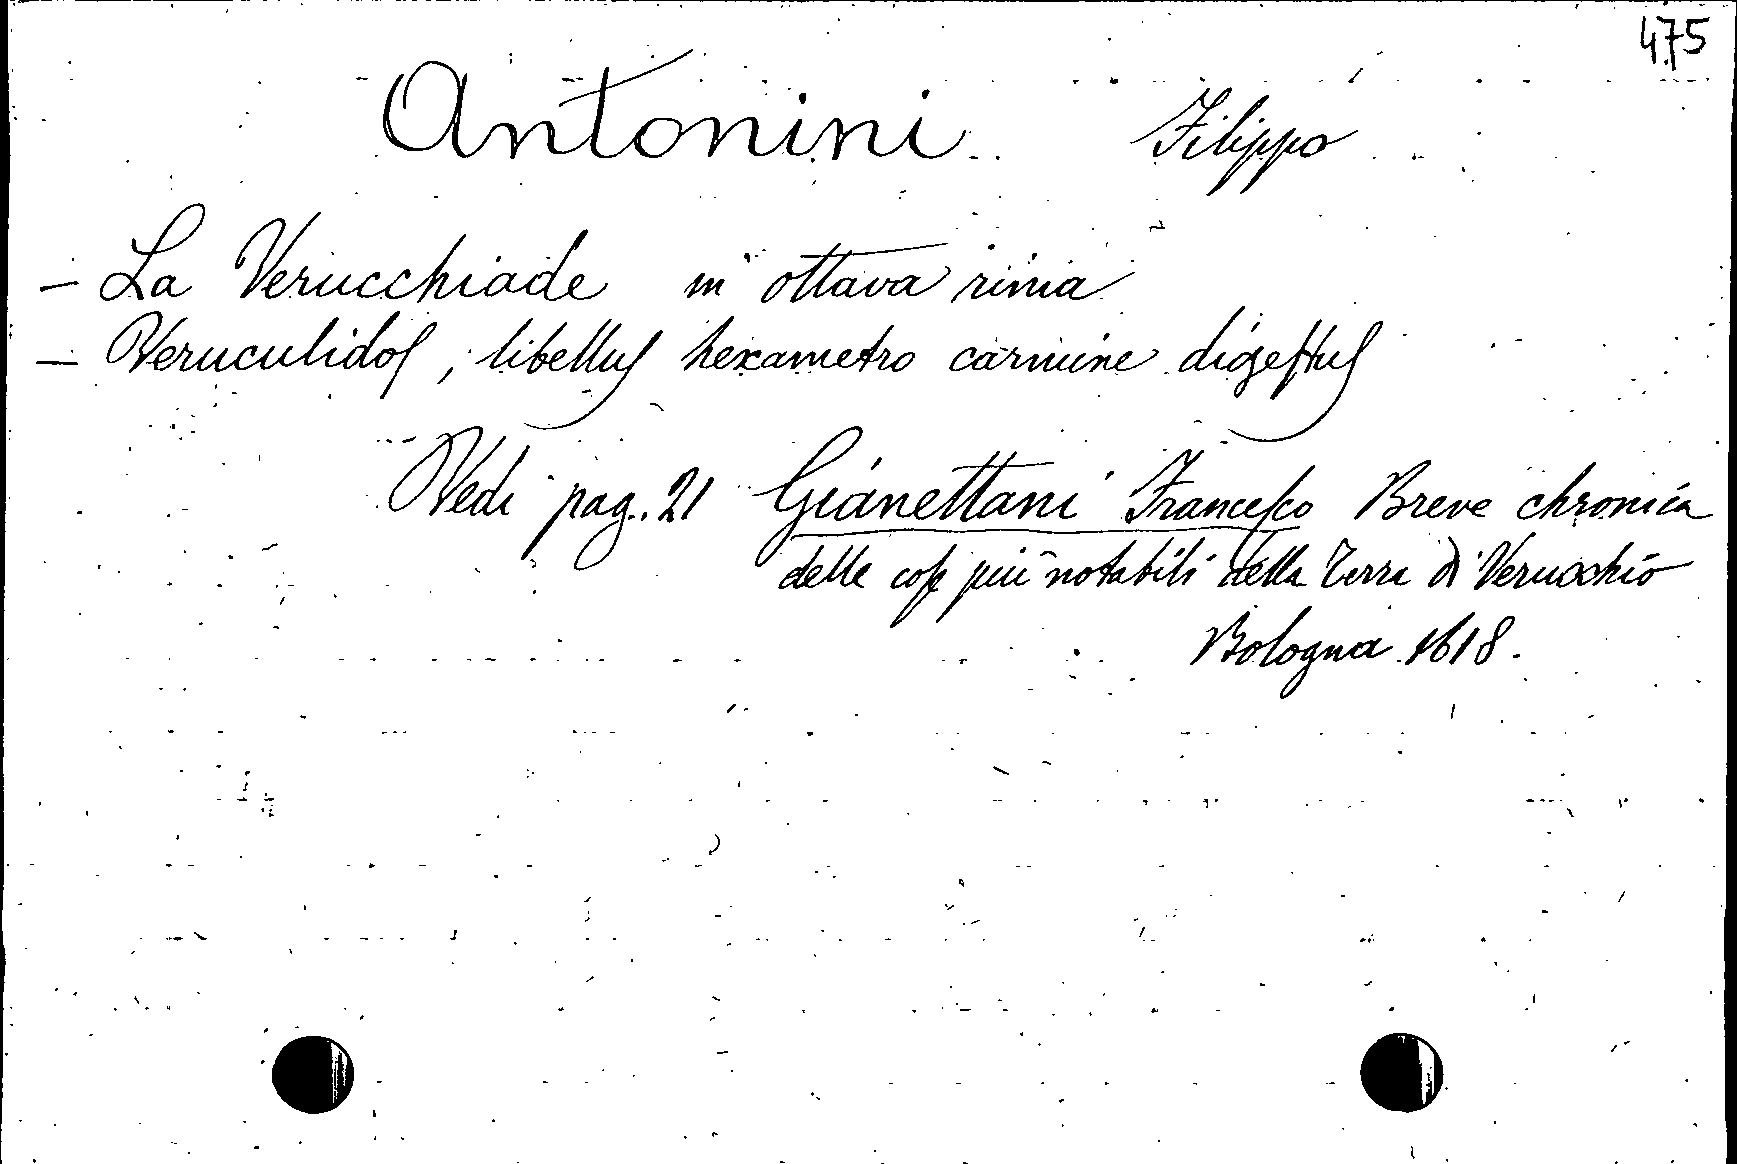 475
Antonini Filippo
- La Verucchiade in ottava rima
- Veruculidos, libellus hexametro carmine digestus
Vedi pag. 21 Gianettani Francesco Breve chronica
delle cose più notabili della Terra di Verucchio
Bologna 1618.